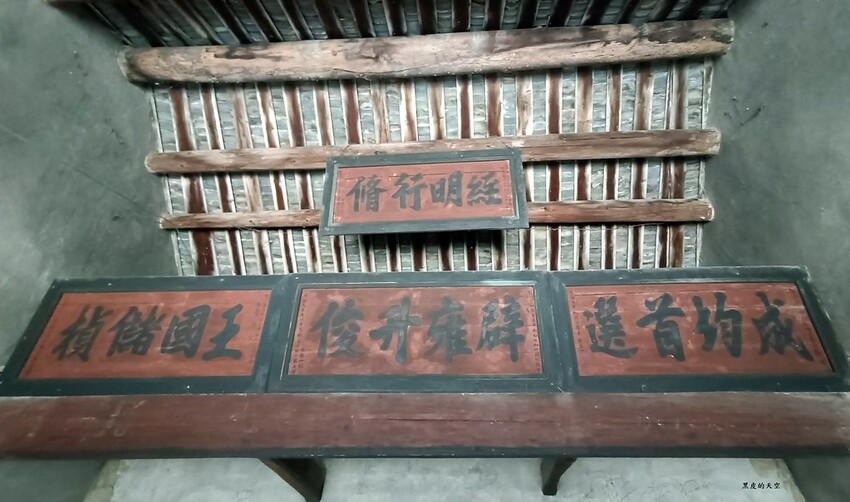 經明行脩
成均首選
辟雍升俊
王國儲楨
黑皮的天空